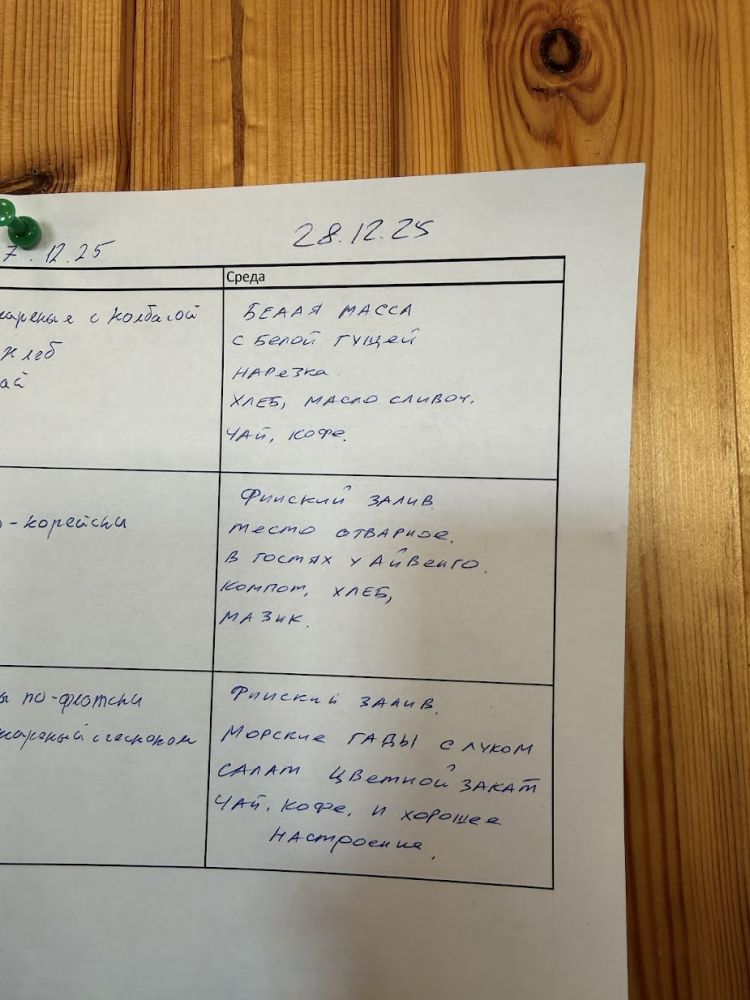 7.12.25
28.12.25
Среда
жареные с колбасой
хлеб
БЕЛАЯ МАССА
С БЕЛОЙ ГУЩЕЙ
НАРЕЗКА.
ХЛЕБ, МАСЛО СЛИВОЧ.
ЧАЙ, КОФЕ.
о-корейски
ФИНСКИЙ ЗАЛИВ.
ТЕСТО ОТВАРНОЕ.
В ГОСТЯХ У АЙВЕНГО.
КОМПОТ, ХЛЕБ,
МАЗИК.
ы по-флотски
жареный с чесноком
ФИНСКИЙ ЗАЛИВ.
МОРСКИЕ ГАДЫ С ЛУКОМ
САЛАТ ЦВЕТНОЙ ЗАКАТ
ЧАЙ, КОФЕ, И ХОРОШЕЕ
НАСТРОЕНИЕ.